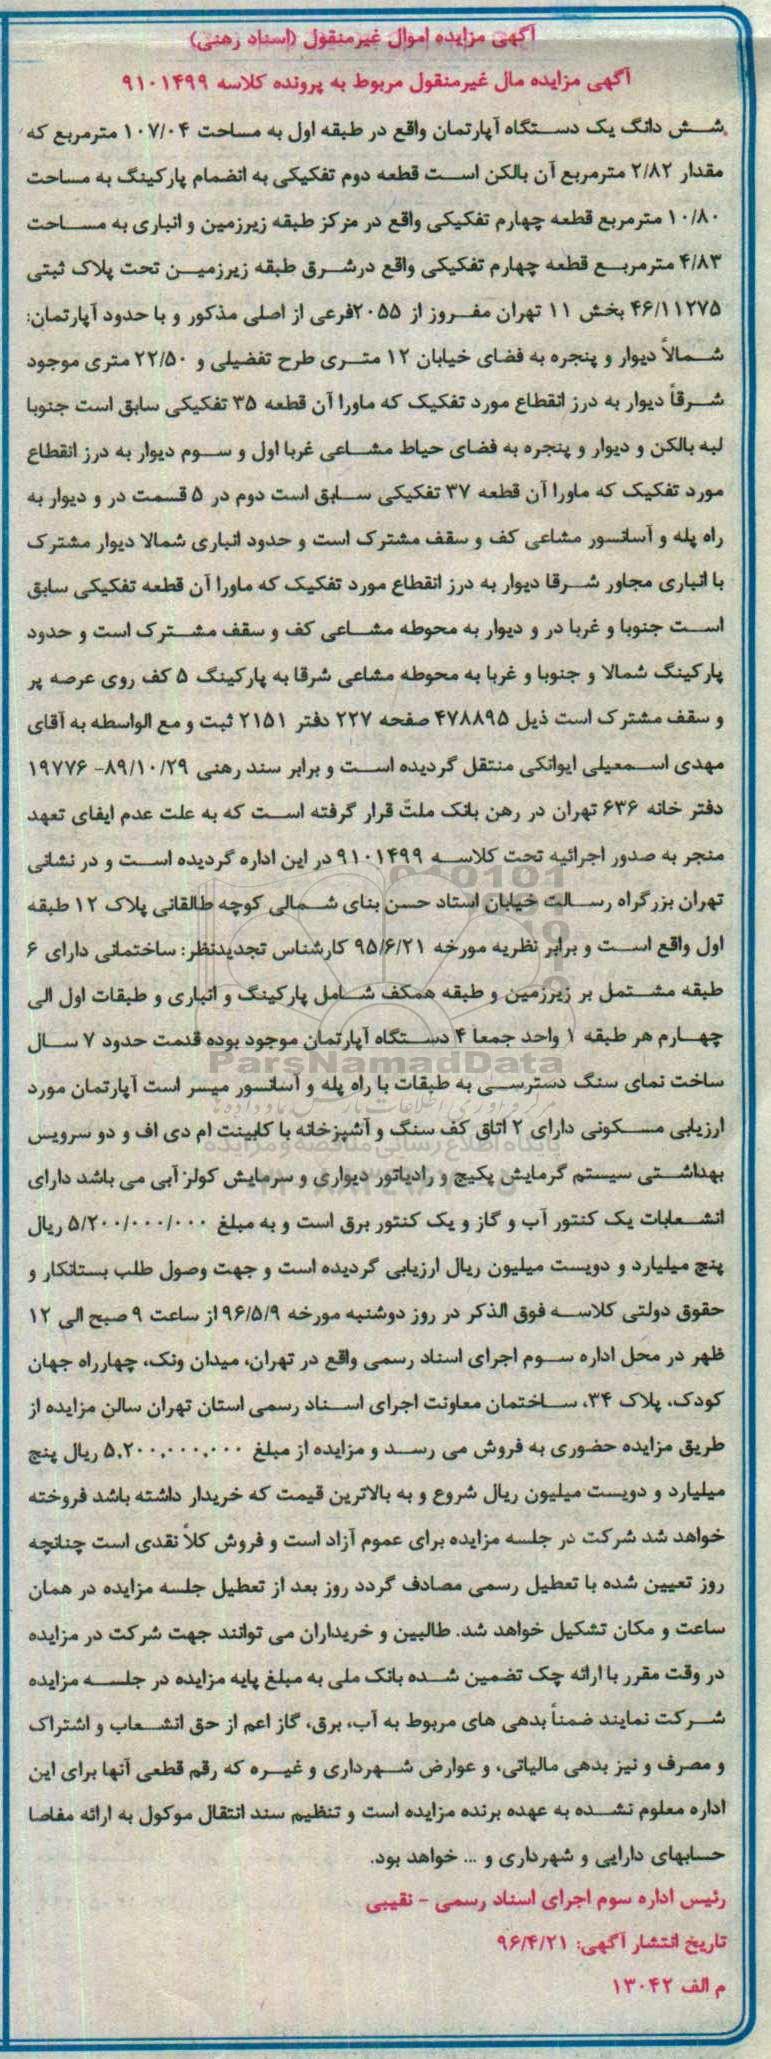 آگهی مزایده اموال غیرمنقول (اسناد رهنی)
آگهی مزایده مال غیرمنقول مربوط به پرونده کلاسه ۹۱۰۱۴۹۹
شش دانگ یک دستگاه آپارتمان واقع در طبقه اول به مساحت ۱۰۷/۰۴ مترمربع که
مقدار ۲/۸۲ مترمربع آن بالکن است قطعه دوم تفکیکی به انضمام پارکینگ به مساحت
۱۰/۸۰ مترمربع قطعه چهارم تفکیکی واقع در مرکز طبقه زیرزمین و انباری به مساحت
۴/۸۳ مترمربع قطعه چهارم تفکیکی واقع درشرق طبقه زیرزمین تحت پلاک ثبتی
۴۶/۱۱۲۷۵ بخش ۱۱ تهران مفروز از ۲۰۵۵فرعی از اصلی مذکور و با حدود آپارتمان:
شمالاً دیوار و پنجره به فضای خیابان ۱۲ متری طرح تفضیلی و ۲۲/۵۰ متری موجود
شرقاً دیوار به درز انقطاع مورد تفکیک که ماورا آن قطعه ۳۵ تفکیکی سابق است جنوبا
لبه بالکن و دیوار و پنجره به فضای حیاط مشاعی غربا اول و سوم دیوار به درز انقطاع
مورد تفکیک که ماورا آن قطعه ۳۷ تفکیکی سابق است دوم در ۵ قسمت در و دیوار به
راه پله و آسانسور مشاعی کف و سقف مشترک است و حدود انباری شمالا دیوار مشترک
با انباری مجاور شرقا دیوار به درز انقطاع مورد تفکیک که ماورا آن قطعه تفکیکی سابق
است جنوبا و غربا در و دیوار به محوطه مشاعی کف و سقف مشترک است و حدود
پارکینگ شمالا و جنوبا و غربا به محوطه مشاعی شرقا به پارکینگ ۵ کف روی عرصه پر
و سقف مشترک است ذیل ۴۷۸۸۹۵ صفحه ۲۲۷ دفتر ۲۱۵۱ ثبت و مع الواسطه به آقای
مهدی اسمعیلی ایوانکی منتقل گردیده است و برابر سند رهنی ۸۹/۱۰/۲۹- ۱۹۷۷۶
دفتر خانه ۶۳۶ تهران در رهن بانک ملت قرار گرفته است که به علت عدم ایفای تعهد
منجر به صدور اجرائیه تحت کلاسه ۹۱۰۱۴۹۹ در این اداره گردیده است و در نشانی
تهران بزرگراه رسالت خیابان استاد حسن بنای شمالی کوچه طالقانی پلاک ۱۲ طبقه
اول واقع است و برابر نظریه مورخه ۹۵/۶/۲۱ کارشناس تجدیدنظر: ساختمانی دارای ۶
طبقه مشتمل بر زیرزمین و طبقه همکف شامل پارکینگ و انباری و طبقات اول الی
چهارم هر طبقه ۱ واحد جمعا ۴ دستگاه آپارتمان موجود بوده قدمت حدود ۷ سال
ParsNamadData
ساخت نمای سنگ دسترسی به طبقات با راه پله و آسانسور میسر است آپارتمان مورد
ارزیابی مسکونی دارای ۲ اتاق کف سنگ و آشپزخانه با کابینت ام دی اف و دو سرویس
پایگاه اطلاع رسانی مناقصه و مزایده
بهداشتی سیستم گرمایش پکیج و رادیاتور دیواری و سرمایش کولر آبی می باشد دارای
انشعابات یک کنتور آب و گاز و یک کنتور برق است و به مبلغ ۵/۲۰۰/۰۰۰/۰۰۰ ریال
پنج میلیارد و دویست میلیون ریال ارزیابی گردیده است و جهت وصول طلب بستانکار و
حقوق دولتی کلاسه فوق الذکر در روز دوشنبه مورخه ۹۶/۵/۹ از ساعت ۹ صبح الی ۱۲
ظهر در محل اداره سوم اجرای اسناد رسمی واقع در تهران، میدان ونک، چهارراه جهان
کودک، پلاک ۳۴، ساختمان معاونت اجرای اسناد رسمی استان تهران سالن مزایده از
طریق مزایده حضوری به فروش می رسد و مزایده از مبلغ ۵,۲۰۰,۰۰۰,۰۰۰ ریال پنج
میلیارد و دویست میلیون ریال شروع و به بالاترین قیمت که خریدار داشته باشد فروخته
خواهد شد شرکت در جلسه مزایده برای عموم آزاد است و فروش کلاً نقدی است چنانچه
روز تعیین شده با تعطیل رسمی مصادف گردد روز بعد از تعطیل جلسه مزایده در همان
ساعت و مکان تشکیل خواهد شد. طالبین و خریداران می توانند جهت شرکت در مزایده
در وقت مقرر با ارائه چک تضمین شده بانک ملی به مبلغ پایه مزایده در جلسه مزایده
شرکت نمایند ضمناً بدهی های مربوط به آب، برق، گاز اعم از حق انشعاب و اشتراک
و مصرف و نیز بدهی مالیاتی، و عوارض شهرداری و غیره که رقم قطعی آنها برای این
اداره معلوم نشده به عهده برنده مزایده است و تنظیم سند انتقال موکول به ارائه مفاصا
حسابهای دارایی و شهرداری و ... خواهد بود.
رئیس اداره سوم اجرای اسناد رسمی - نقیبی
تاریخ انتشار آگهی: ۹۶/۴/۲۱
م الف ۱۳۰۴۲